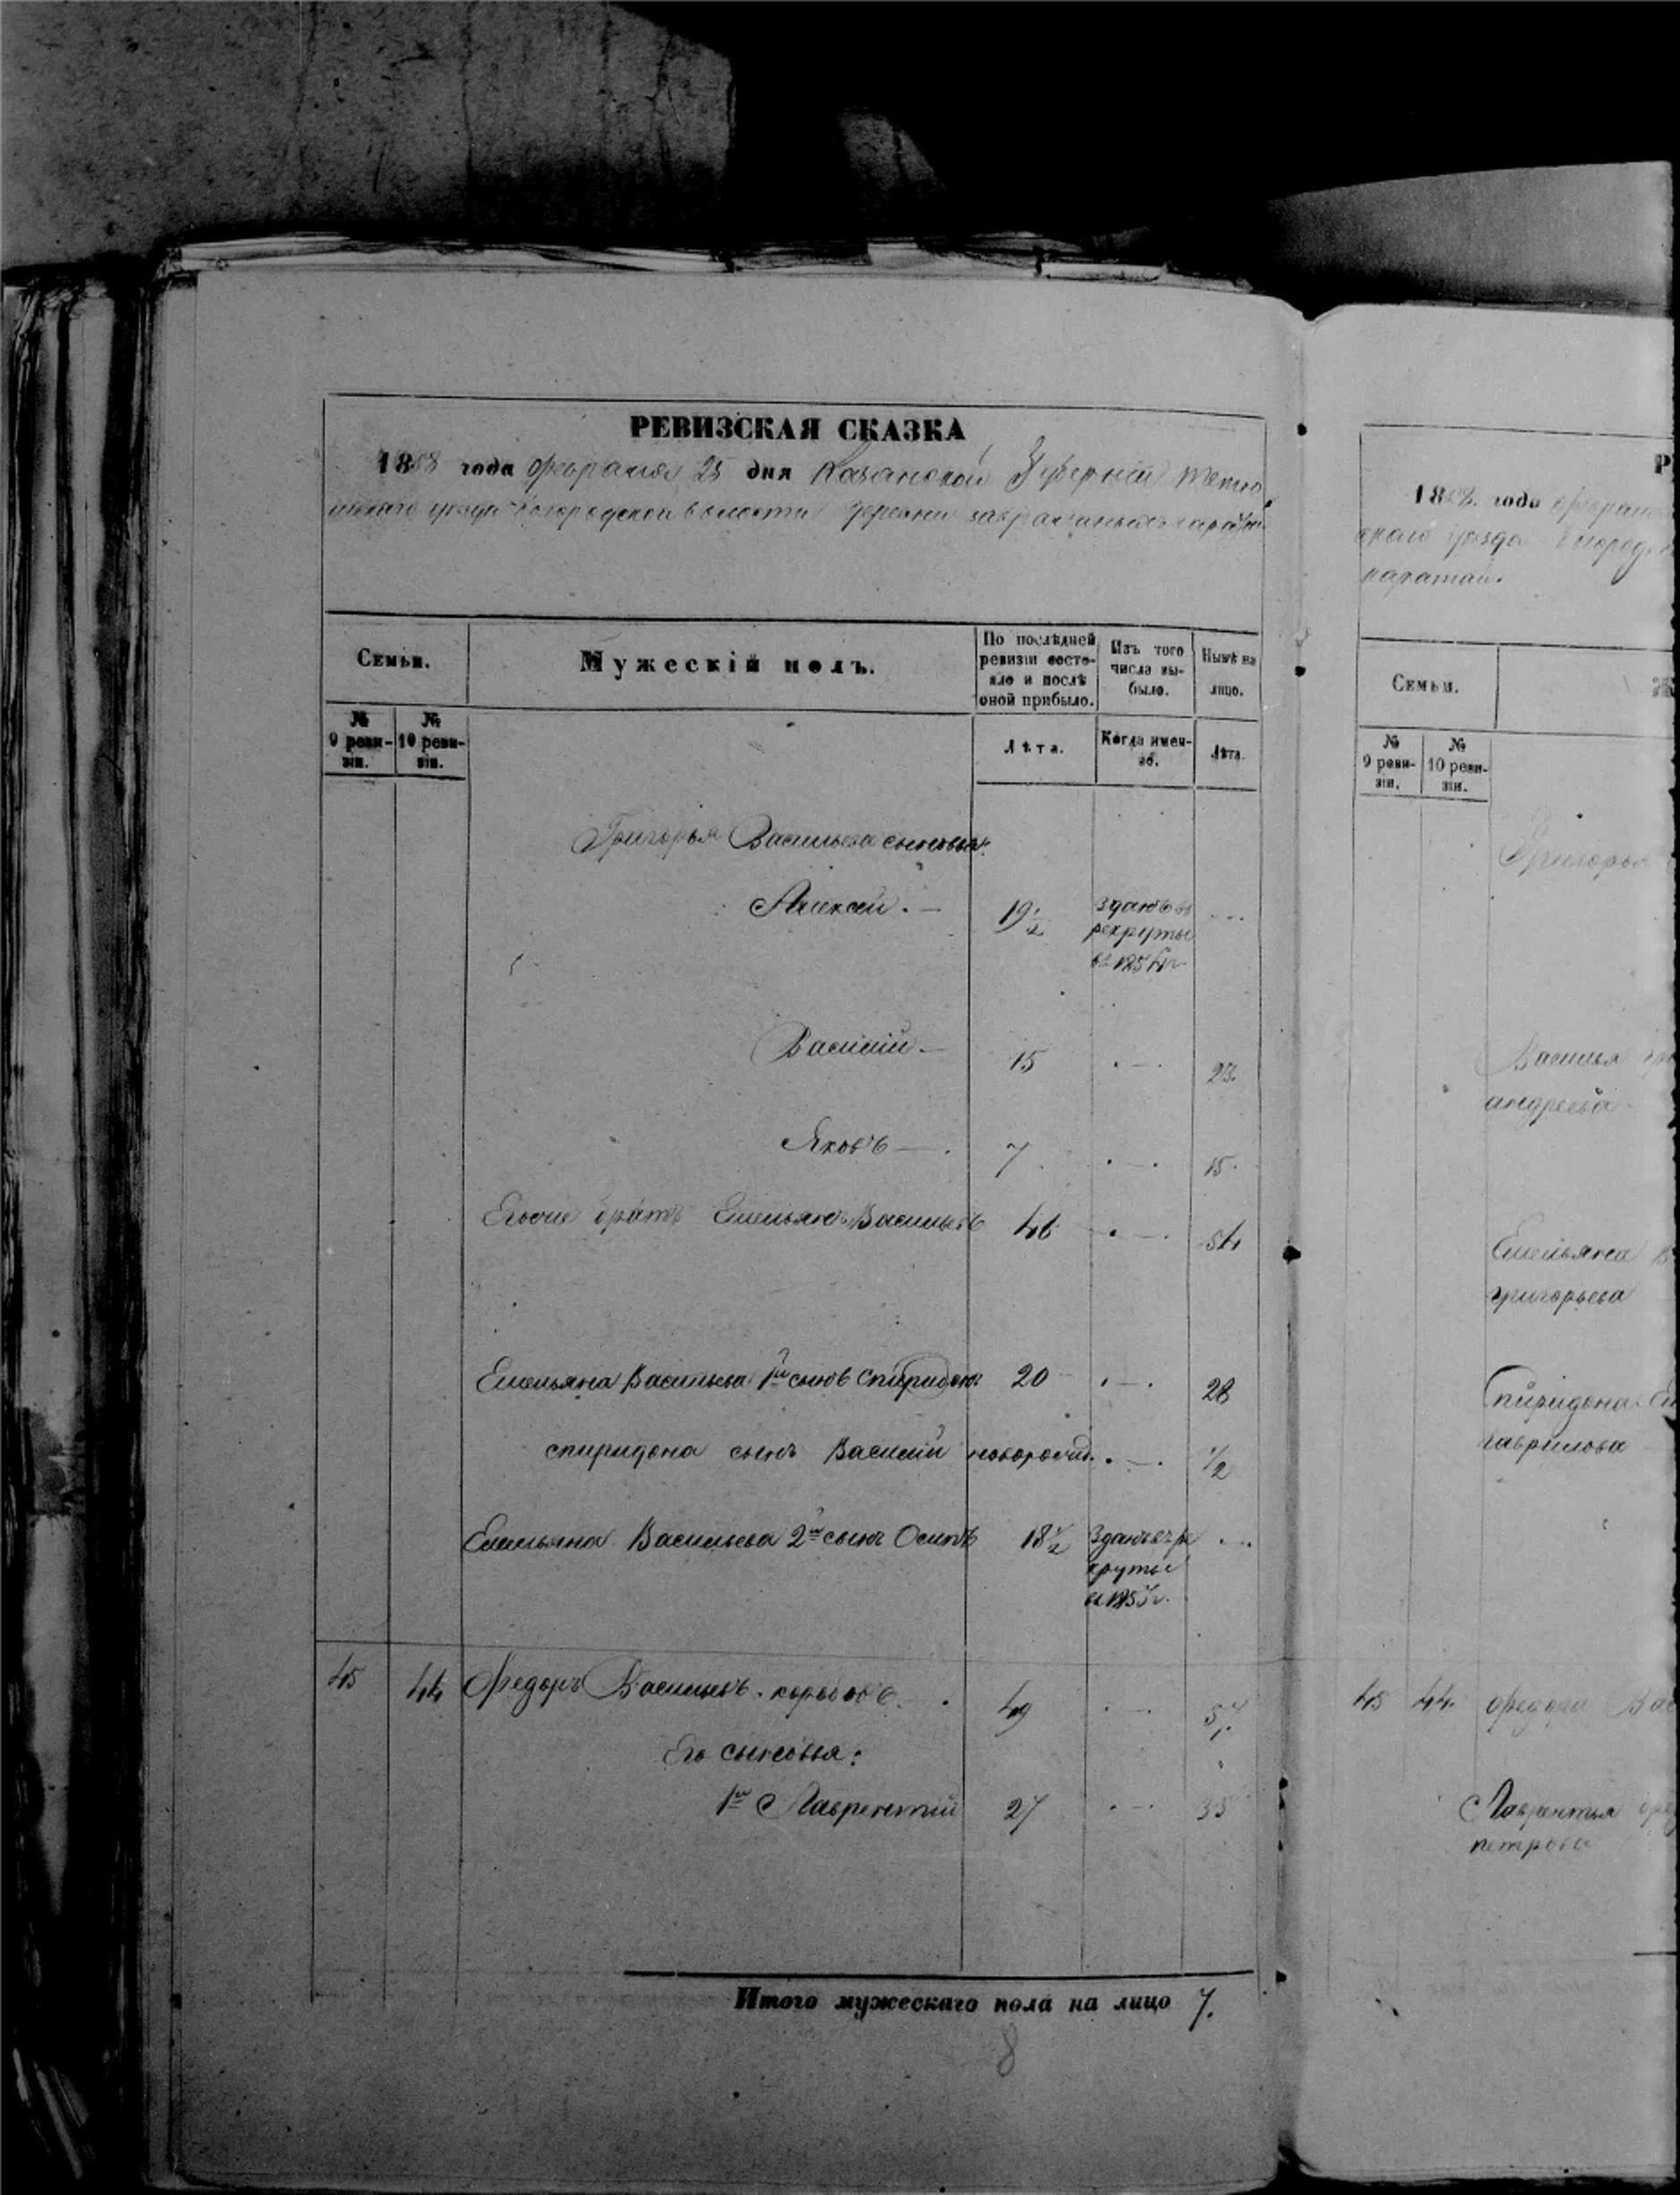 РЕВИЗСКАЯ СКАЗКА
1858 года февраля 25 дня Казанской Губернии Тетю
шскаго уезда Богородской волости деревни
Семьи.
Мужескій полъ.
По послѣдней
ревизіи состо-
яло и послѣ
оной прибыло.
Изъ того
числа вы-
было.
Нынѣ на
лицо.
№
9 реви-
зіи.
№
10 реви-
зіи.
Лѣта.
Когда имен-
но.
Лѣта.
Григорья Васильева сыновья:
Алексей. — 19 1/2 зданъ въ
рекруты
въ 1854 г.
Василій — 15 23.
Яковъ — 7 15.
братъ Емельянъ Васильевъ 46 54
Емельяна Васильева 1й сынъ Спиридонъ 20 28
спиридона сынъ Василій новорожд. 1/2
Емельяна Васильева 2й сынъ Осипъ 18 1/2 Зданъ въ ре
круты
45 44 Федоръ Васильевъ 49 57.
Его сыновья:
1й Лаврентій 27 35
Итого мужескаго пола на лицо 7.
8
Р
1858. года
скаго уезда
каратаи.
Семьи.
Ж
№
9 реви-
зіи.
№
10 реви-
зіи.
Григорья
Василья
андреева
Емельяна В
григорьева
Спиридона
гаврилова
45 44. федора Ва
Лаврентья
петрова